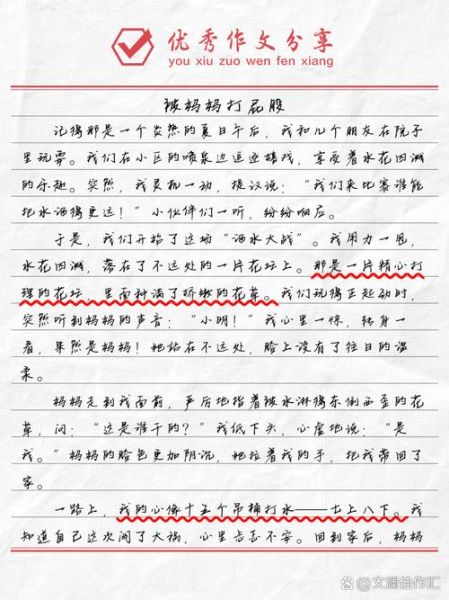 优秀作文分享
you xiu zuo wen fen xiang
被妈妈打屁股
记得那是一个炎热的夏日午后，我和几个朋友在院子
里玩耍。我们在小区的喷泉边追逐嬉戏，享受着水花四溅
的乐趣。突然，我灵机一动，提议说：“我们来比赛谁能
把水洒得更远！”小伙伴们一听，纷纷响应。
于是，我们开始了这场“洒水大战”。我用力一甩，
水花四溅，落在了不远处的一片花坛上。那是一片精心打
理的花坛，里面种满了娇嫩的花草。我们玩得正起劲时，
突然听到妈妈的声音：“小明！”我心里一惊，转身一
看，果然是妈妈！她站在不远处，脸上没有了往日的温
柔。
妈妈走到我面前，严厉地指着被水淋得东倒西歪的花
草，问：“这是谁干的？”我低下头，心虚地说：“是
我。”妈妈的脸色更加阴沉，她拉着我的手，把我带回了
家。
一路上，我的心像十五个吊桶打水——七上八下。我
知道自己这次闯了大祸，心里忐忑不安。回到家后，妈妈
@文涯佳作汇